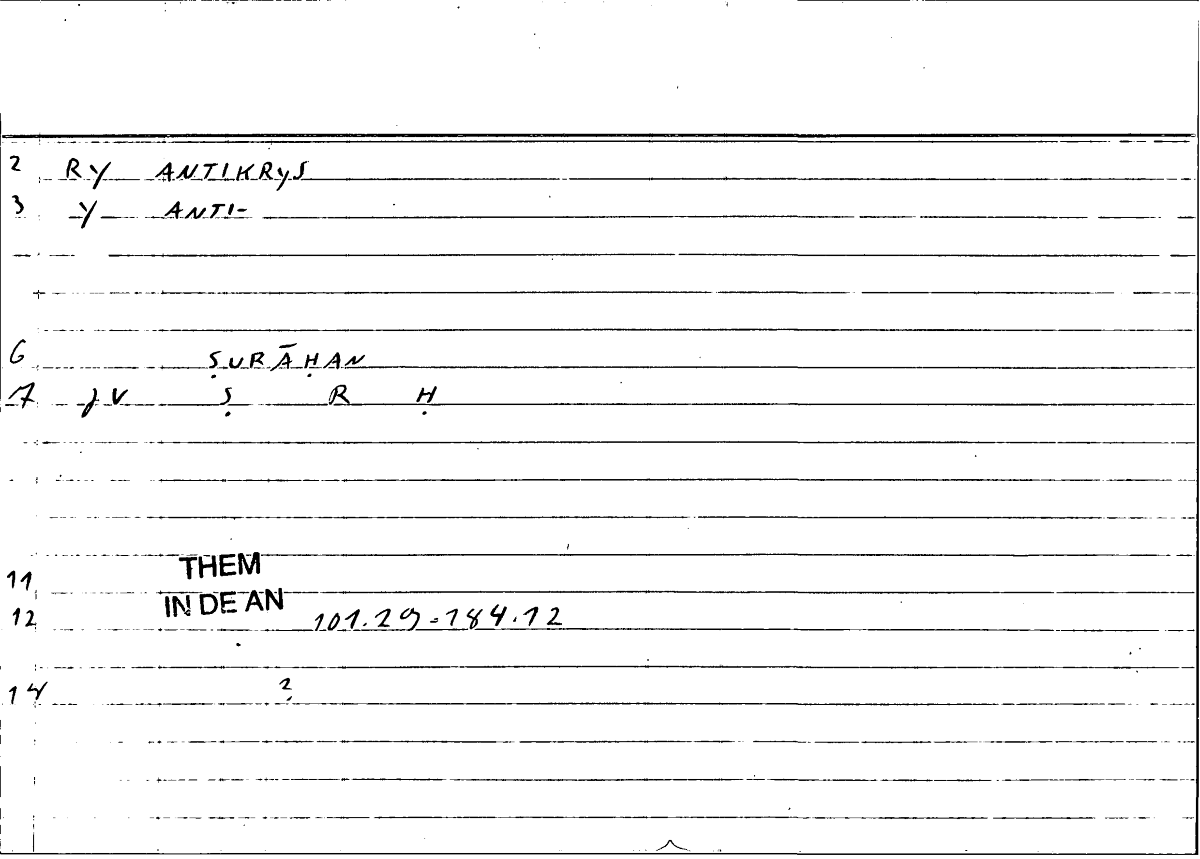 2 RY ANTIKRYS
3 Y ANTI-
6 ṢURĀḤAN
7 JV Ṣ R Ḥ
11 THEM
12 IN DE AN 101.29-184.12
14 ?